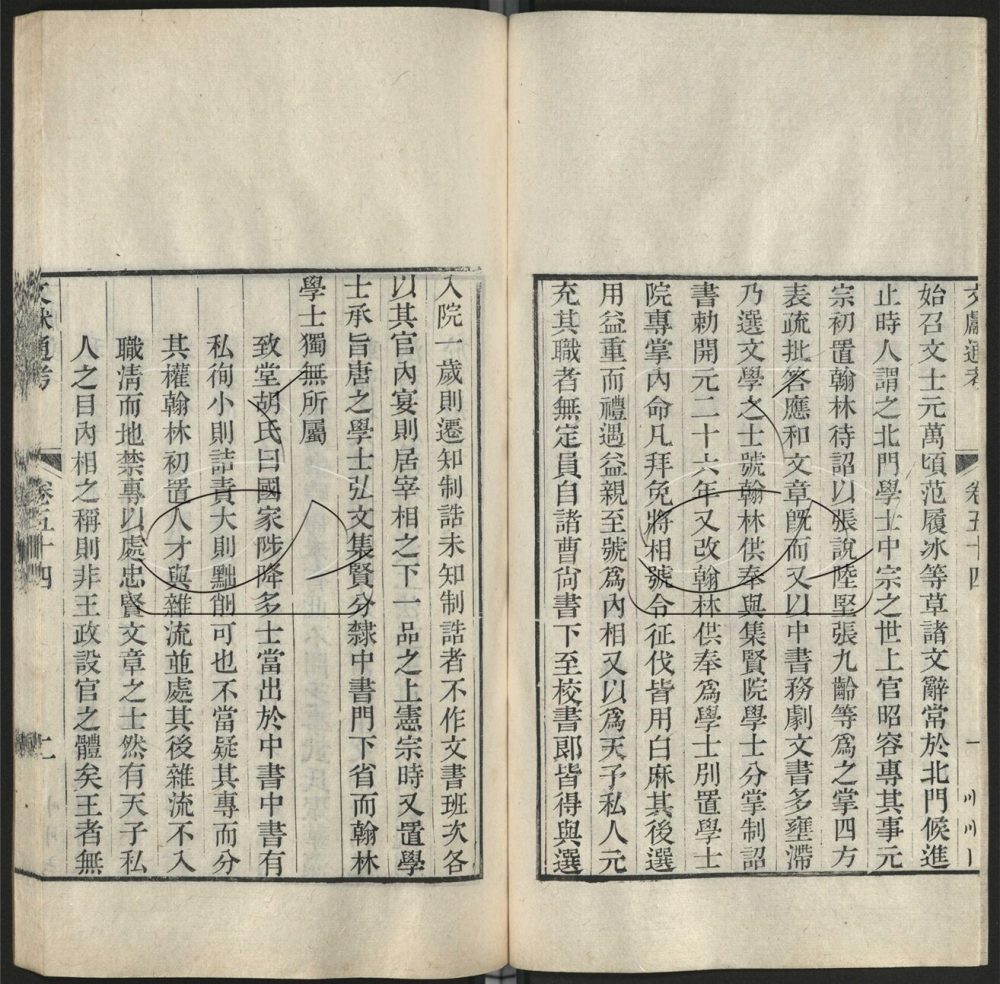 文獻通考 卷五十四
始召文士元萬頃范履冰等草諸文辭常於北門候進
止時人謂之北門學士中宗之世上官昭容專其事元
宗初置翰林待詔以張說陸堅張九齡等爲之掌四方
表疏批答應和文章旣而又以中書務劇文書多壅滯
乃選文學之士號翰林供奉與集賢院學士分掌制詔
書勅開元二十六年又改翰林供奉爲學士別置學士
院專掌內命凡拜免將相號令征伐皆用白麻其後選
用益重而禮遇益親至號爲內相又以爲天子私人元
充其職者無定員自諸曹尙書下至校書郞皆得與選
入院一歲則遷知制誥未知制誥者不作文書班次各
以其官內宴則居宰相之下一品之上憲宗時又置學
士承旨唐之學士弘文集賢分隸中書門下省而翰林
學士獨無所屬
致堂胡氏曰國家陟降多士當出於中書中書有
私徇小則詰責大則黜削可也不當疑其專而分
其權翰林初置人才與雜流並處其後雜流不入
職清而地禁專以處忠賢文章之士然有天子私
人之目內相之稱則非王政設官之體矣王者無
文獻通考 卷五十四